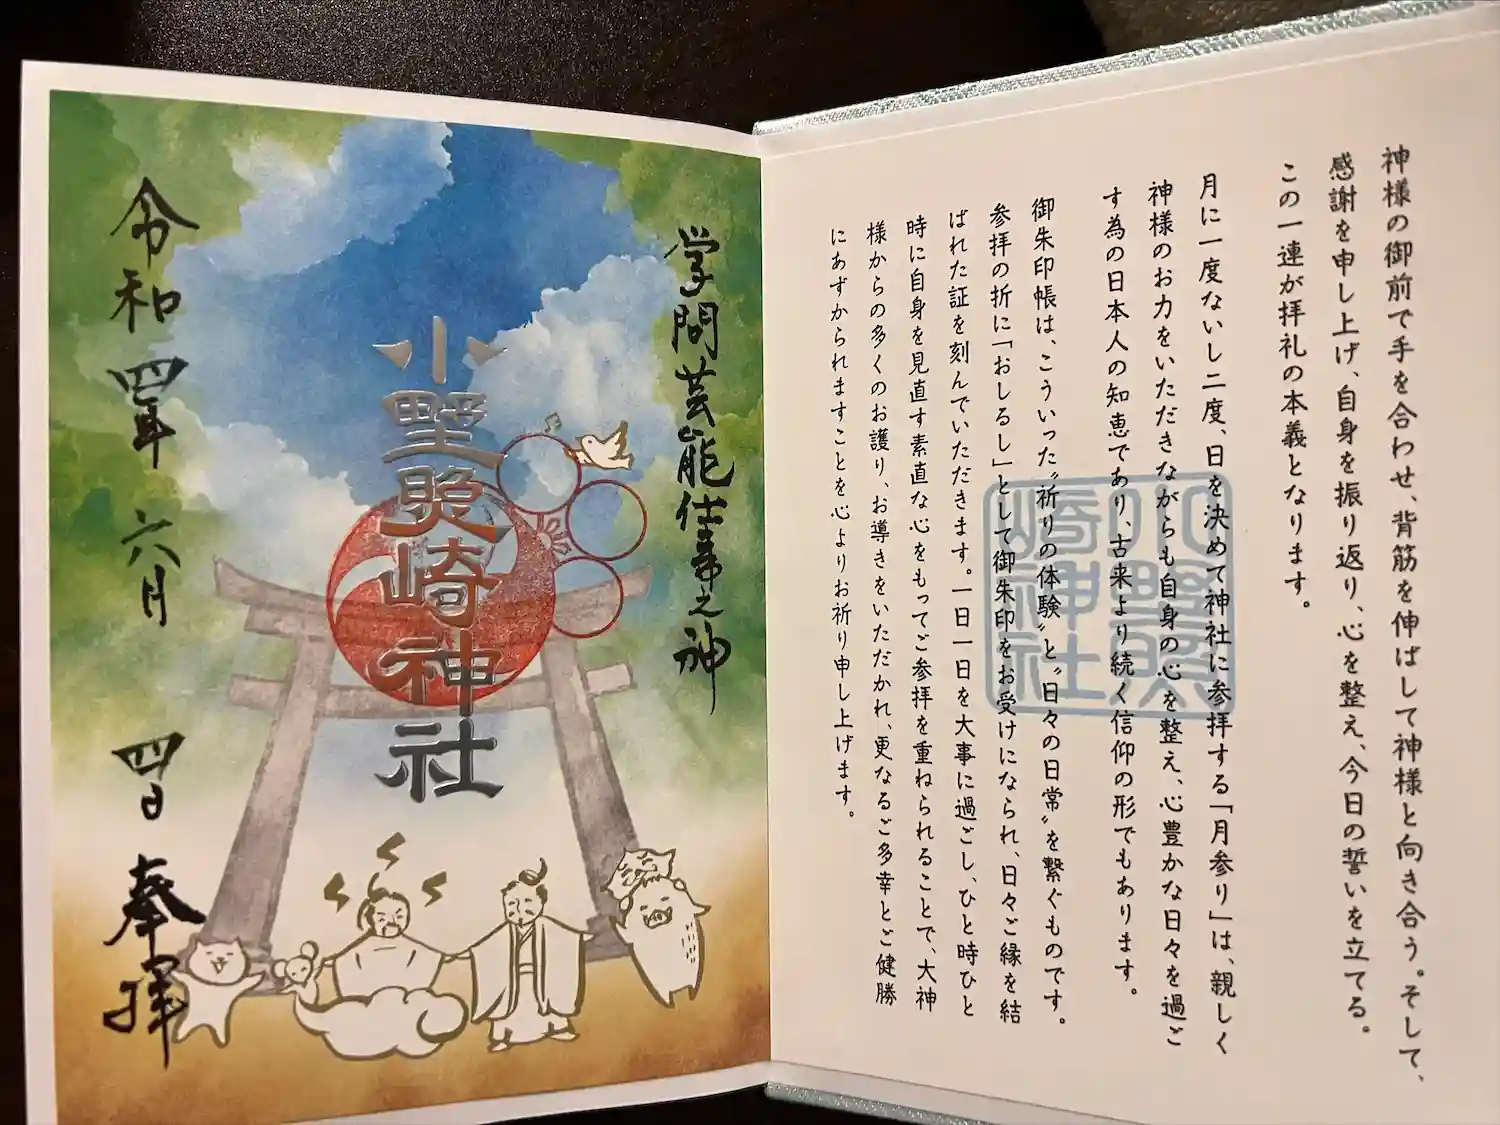 神様の御前で手を合わせ、背筋を伸ばして神様と向き合う。そして、
感謝を申し上げ、自身を振り返り、心を整え、今日の誓いを立てる。
この一連が拝礼の本義となります。
月に一度ないし二度、日を決めて神社に参拝する「月参り」は、親しく
神様のお力をいただきながらも自身の心を整え、心豊かな日々を過ご
す為の日本人の知恵であり、古来より続く信仰の形でもあります。
御朱印帳は、こういった〝祈りの体験〟と〝日々の日常〟を繋ぐものです。
参拝の折に「おしるし」として御朱印をお受けになられ、日々ご縁を結
ばれた証を刻んでいただきます。一日一日を大事に過ごし、ひと時ひと
時に自身を見直す素直な心をもってご参拝を重ねられることで、大神
様からの多くのお護り、お導きをいただかれ、更なるご多幸とご健勝
にあずかられますことを心よりお祈り申し上げます。
小野照
崎神社
学問芸能仕事之神
小野照崎神社
令和四年六月四日奉拝